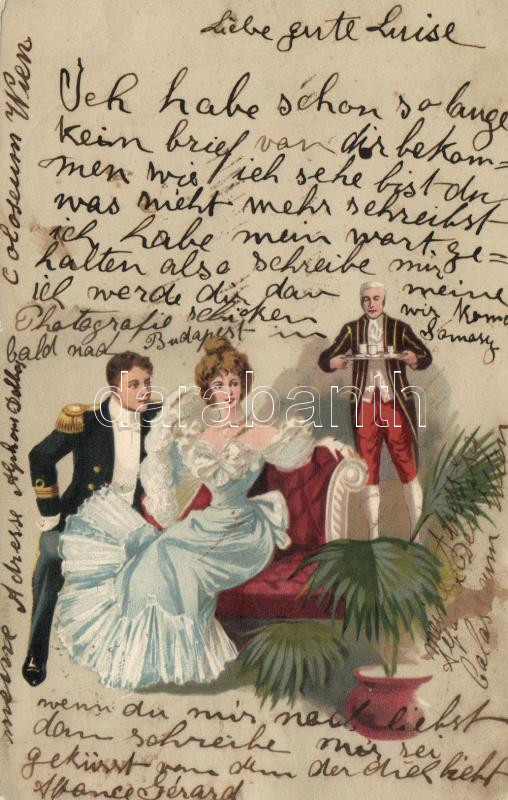 Liebe gute Luise
Ich habe schon so lange
kein brief van dir bekom=
men wie ich sehe bist du
was nicht mehr schreibst
ich habe mein wart ge=
halten also schreibe mir
ich werde dir dan meine
Photagrafie schicken in
wir
bald nach Budapest
Coloseum Wien
meine Adresse
darabanth
wenn du mir noch liebst
dan schreibe mir sei
geküsst van dem der dich liebt
Gérard